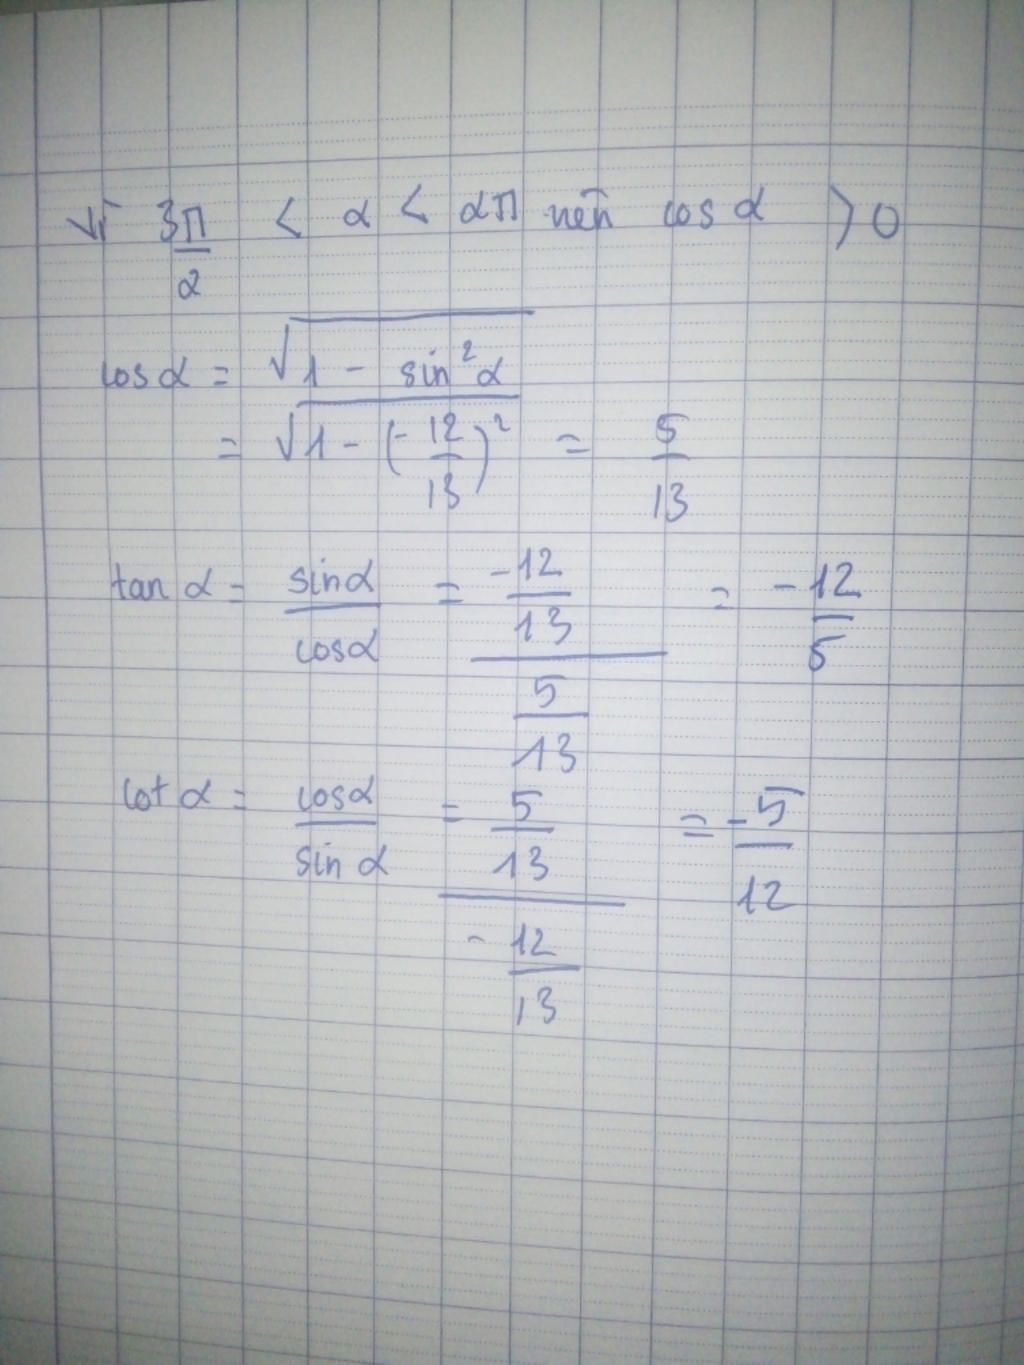 Vì 3π/2 < α < 2π nên cos α > 0
cos α = √(1 - sin²α)
= √(1 - (-12/13)²) = 5/13
tan α = sinα/cosα = (-12/13)/(5/13) = -12/5
cot α = cosα/sin α = (5/13)/(-12/13) = -5/12